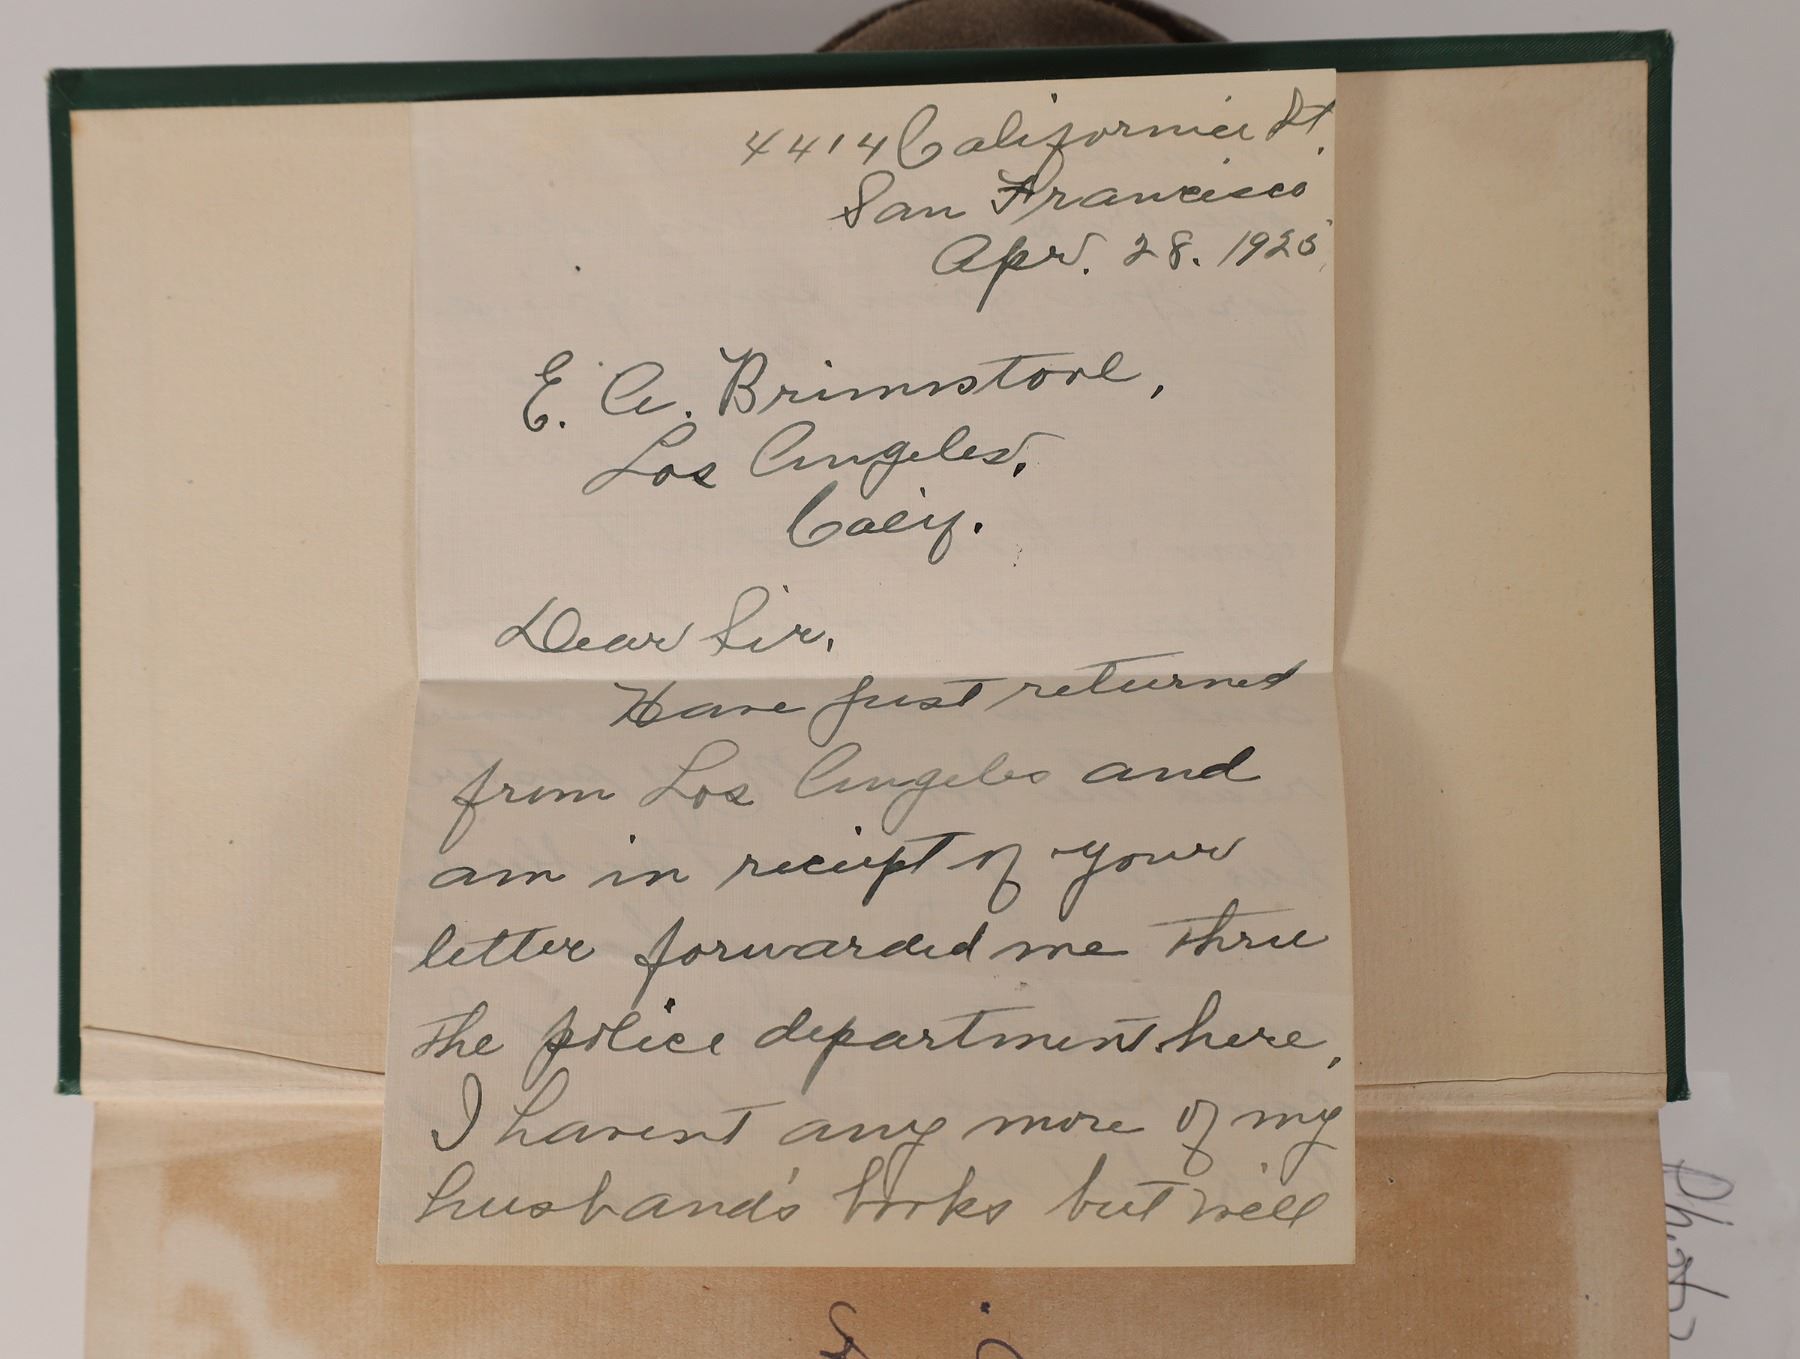 4414 California St.
San Francisco
Apr. 28. 1925
E. A. Brimnstone,
Los Angeles,
Calif.
Dear Sir,
Have just returned
from Los Angeles and
am in reciept of your
letter forwarded me thru
the police department here,
I havent any more of my
husband's books but will